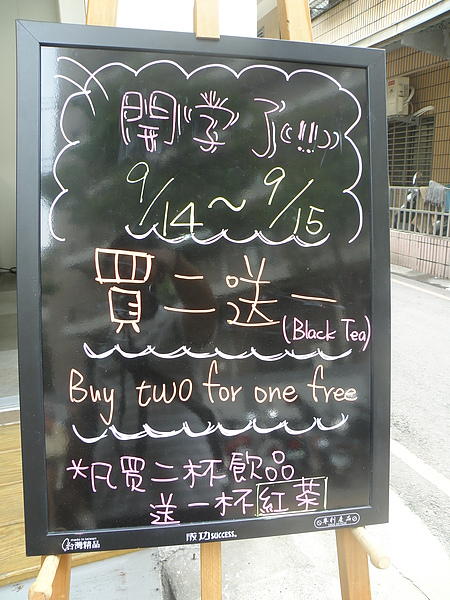 開學了(((!!!))
9/14～9/15
買二送一
(Black Tea)
Buy two for one free
*凡買二杯飲品
送一杯紅茶
MADE IN TAIWAN
台灣精品
成功 SUCCESS
專利產品